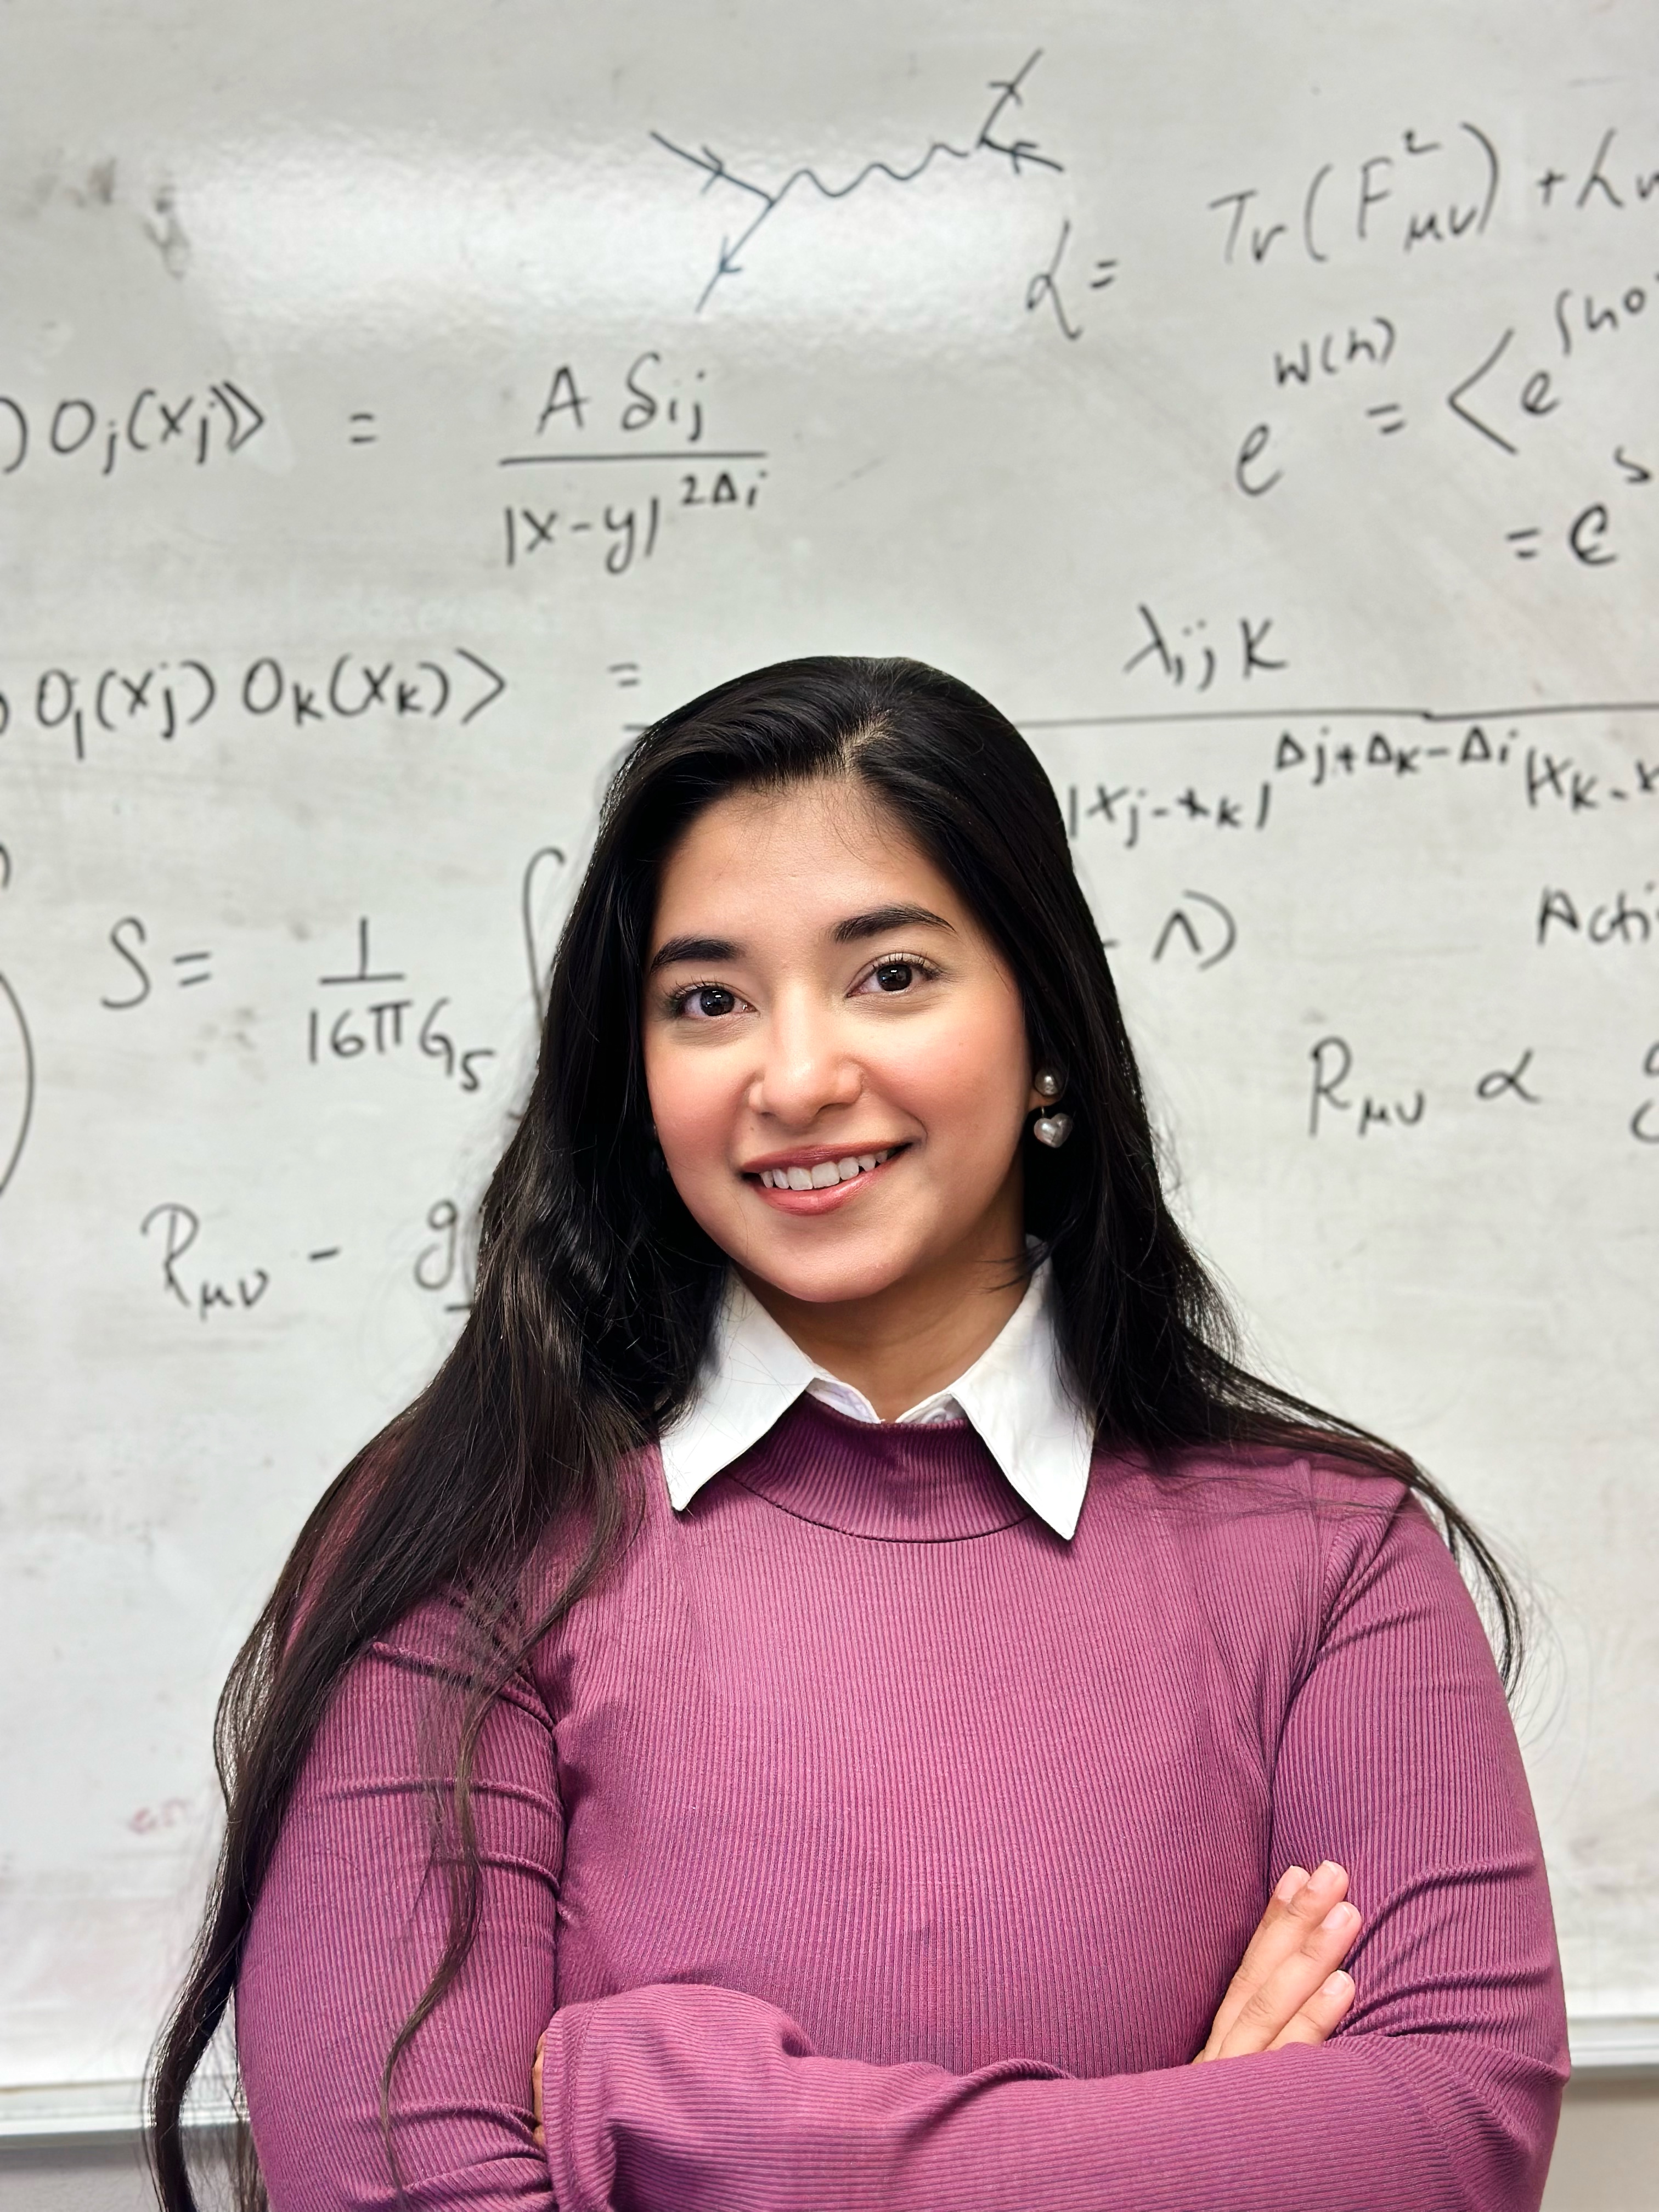 L = Tr(F²_μν) + h
e^W(h) = <e^∫h0
O_j(x_j)>> = A δ_ij / |x-y|^2Δ_i
= e^s
O_j(x_j) O_k(x_k)> = λ_ijk / |x_j-x_k|^Δ_j+Δ_k-Δ_i |x_k-x
S = 1/16πG_5 ∫ - Λ)
Acti
R_μν ∝ g
R_μν - g